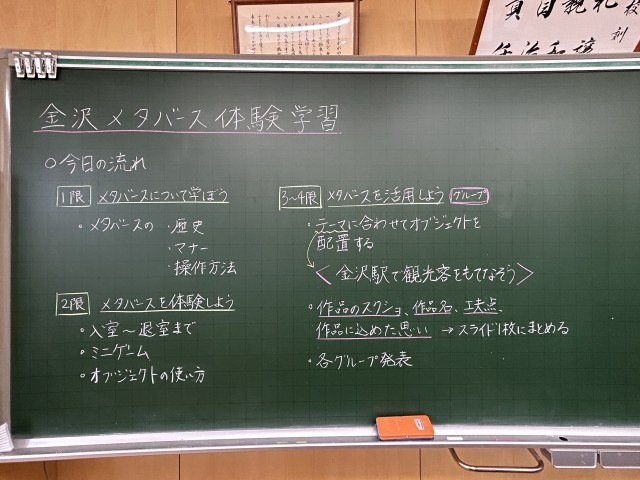 金沢メタバース体験学習
○今日の流れ
1限 メタバースについて学ぼう
・メタバースの ・歴史
・マナー
・操作方法
2限 メタバースを体験しよう
・入室〜退室まで
・ミニゲーム
・オブジェクトの使い方
3〜4限 メタバースを活用しよう グループ
・テーマに合わせてオブジェクトを
配置する
〈金沢駅で観光客をもてなそう〉
・作品のスクショ、作品名、工夫点、
作品に込めた思い → スライド1枚にまとめる
・各グループ発表